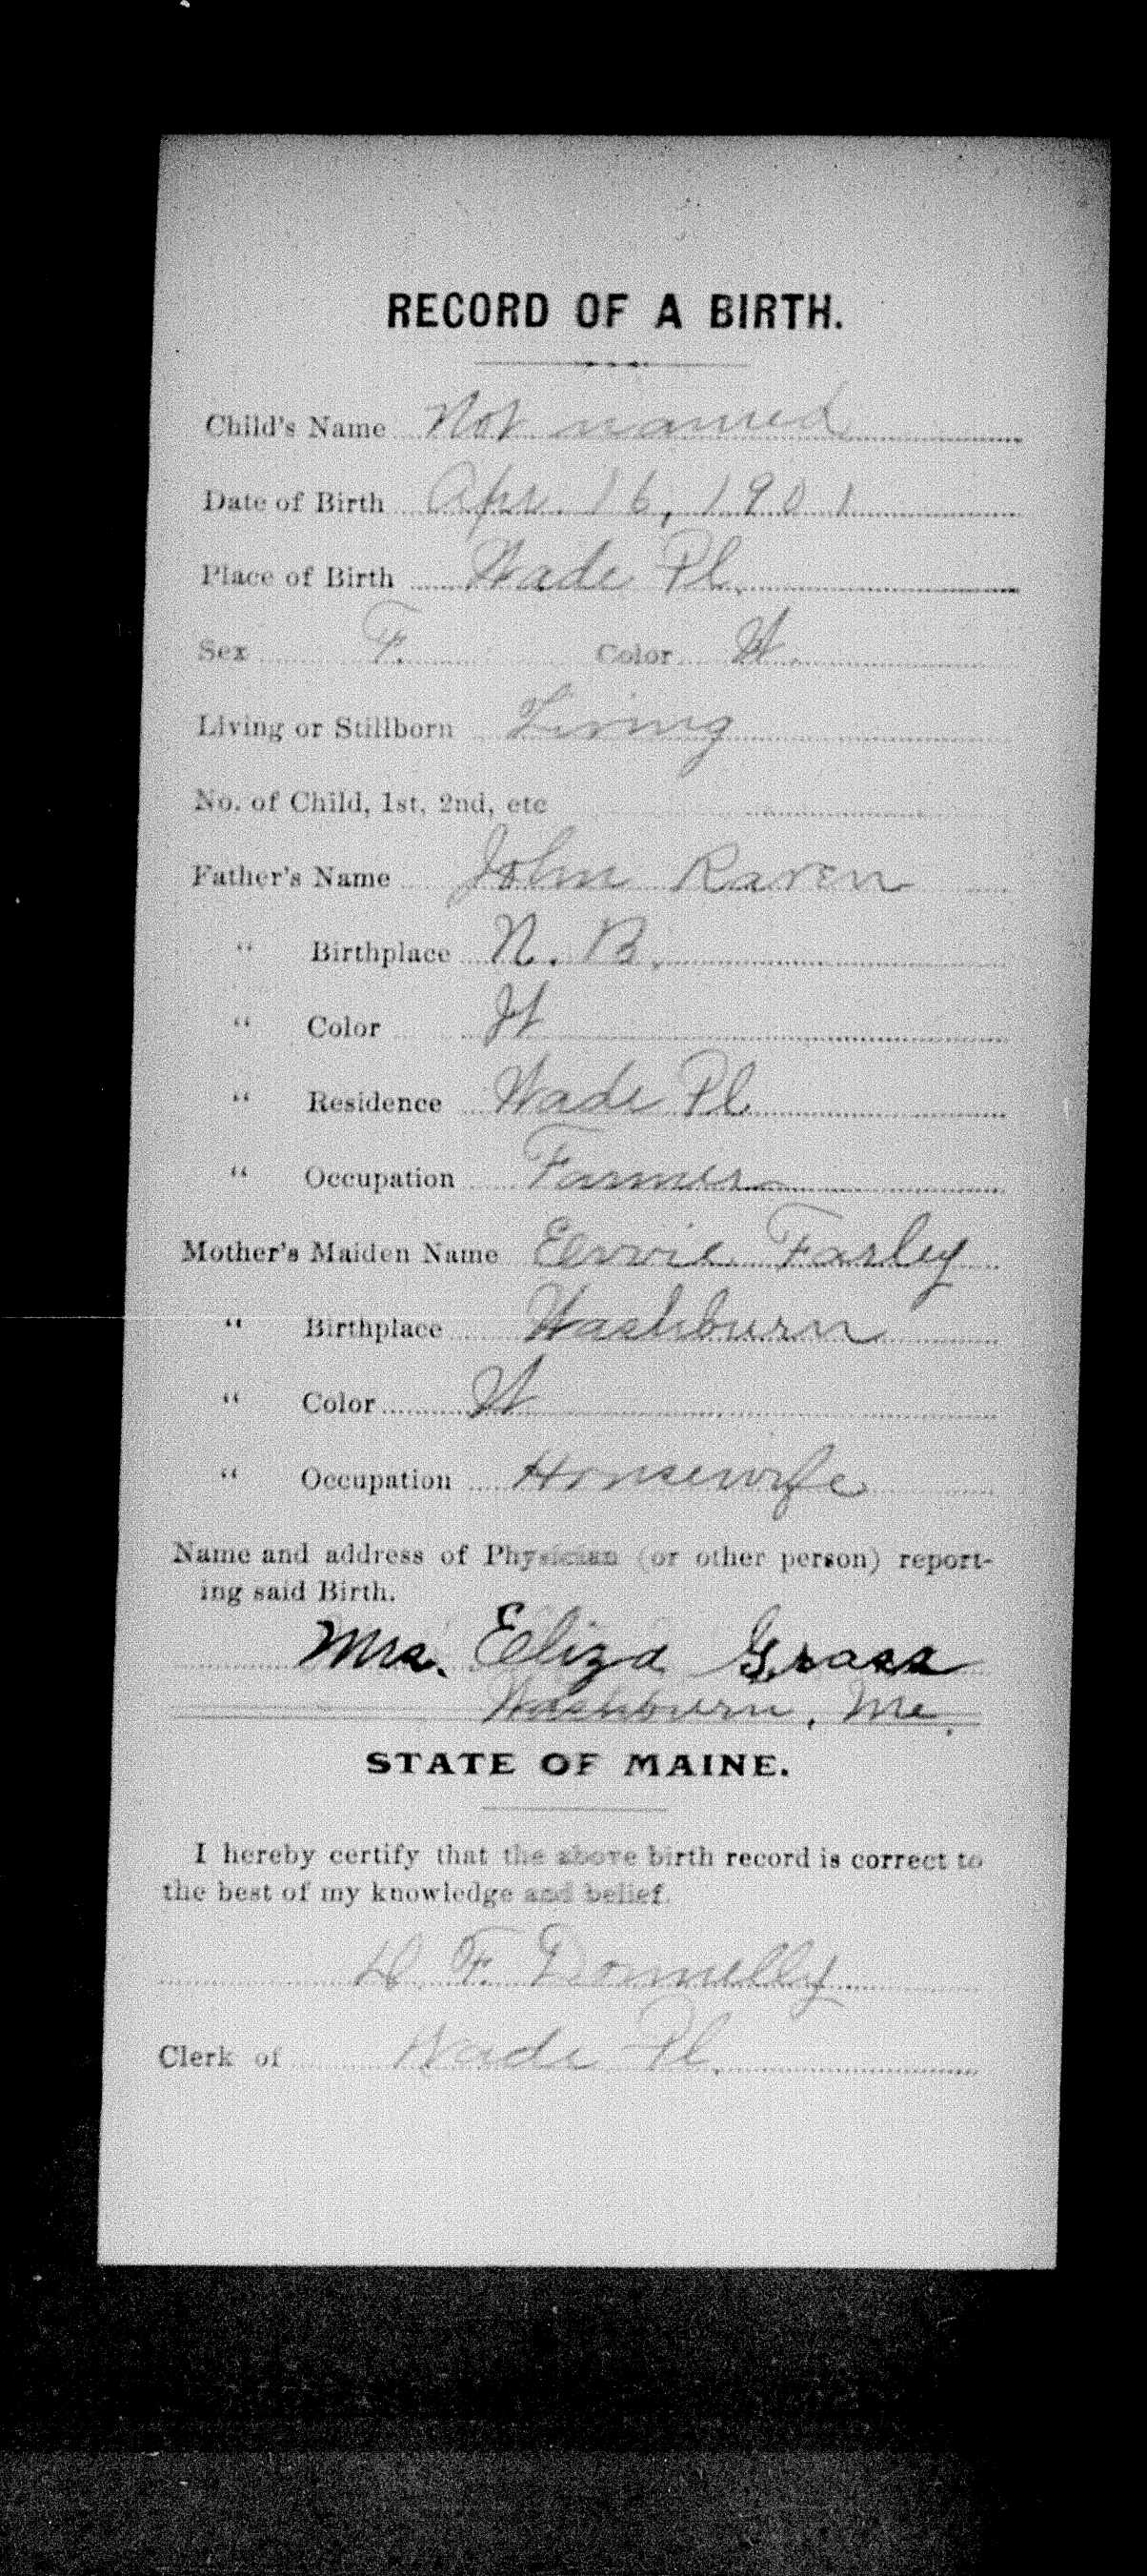 RECORD OF A BIRTH.
Child's Name Not named
Date of Birth Apr. 16, 1901
Place of Birth Wade Pl.
Sex F. Color W.
Living or Stillborn Living
No. of Child, 1st, 2nd, etc
Father's Name John Raven
" Birthplace N. B.
" Color W
" Residence Wade Pl
" Occupation Farmer
Mother's Maiden Name Farley
" Birthplace Washburn
" Color W
" Occupation Housewife
Name and address of Physician (or other person) report-
ing said Birth.
Mrs. Eliza Grass
Washburn, Me.
STATE OF MAINE.
I hereby certify that the above birth record is correct to
the best of my knowledge and belief.
F. Donnelly
Clerk of Wade Pl.